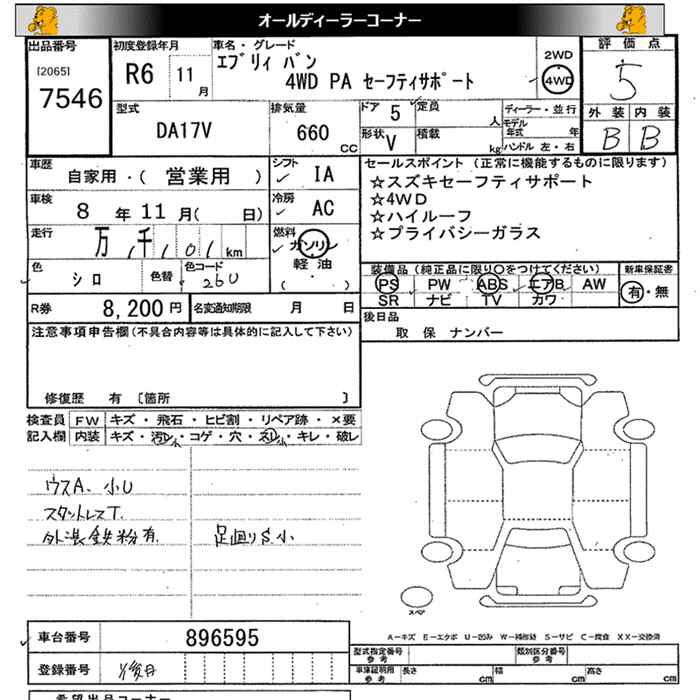 オールディーラーコーナー
出品番号
[2065]
7546
初度登録年月
R6 11月
車名・グレード
エブリィ バン
4WD PA セーフティサポート
2WD
4WD
評価点
5
外装 内装
B B
型式
DA17V
排気量
660 CC
ドア 5
定員 人
形状 V
積載 kg
ディーラー・並行
モデル年式 年
ハンドル 左・右
車歴
自家用・( 営業用 )
シフト IA
車検
8年11月( 日)
冷房 AC
走行
万 千 1 0 1 km
燃料
ガソリン
軽油
( )
色 シロ 色替 色コード 26U
R券 8,200円 名変通知期限 月 日
セールスポイント (正常に機能するものに限ります)
☆スズキセーフティサポート
☆4WD
☆ハイルーフ
☆プライバシーガラス
装備品(純正品に限り○をつけてください) 新車保証書
PS PW ABS エアB AW 有・無
SR ナビ TV カワ
後日品
取 保 ナンバー
注意事項申告欄(不具合内容等は具体的に記入して下さい)
修復歴 有 [箇所 ]
検査員 FW キズ・飛石・ヒビ割・リペア跡・×要
記入欄 内装 キズ・汚レ小・コゲ・穴・スレ小・キレ・破レ
ウスA、小U
スタットレスT.
外装鉄粉有. 足廻りS.小
スペア
A-キズ E-エクボ U-凹み W-補修跡 S-サビ C-腐食 XX-交換済
車台番号 896595
登録番号 後日
型式指定番号 参考
類別区分番号 参考
車庫証明用 参考 長さ cm 幅 cm 高さ cm
希望出品コーナー